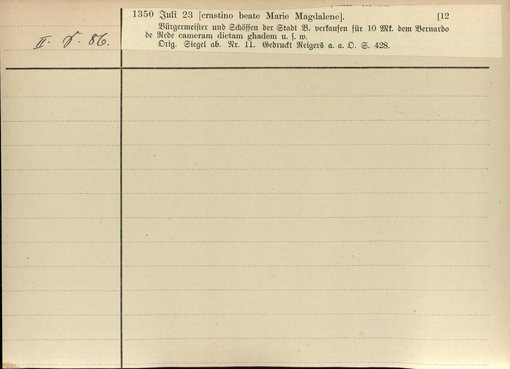 II. 8. 86.
1350 Juli 23 [crastino beate Marie Magdalene]. [12
Bürgermeister und Schöffen der Stadt B. verkaufen für 10 Mk. dem Bernardo
de Rede cameram dictam ghadem u. s. w.
Orig. Siegel ab. Nr. 11. Gedruckt Reigers a. a. O. S. 428.